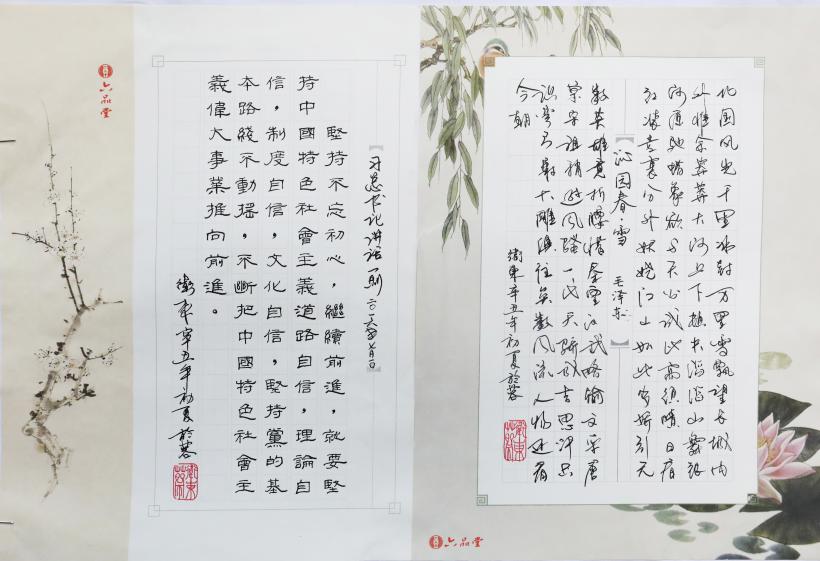 北国风光千里冰封万里雪飘望长城内
外惟余莽莽大河上下顿失滔滔山舞银
蛇原驰蜡象欲与天公试比高须晴日看
红装素裹分外妖娆江山如此多娇引无
【沁园春·雪 毛泽东】
数英雄竞折腰惜秦皇汉武略输文采唐
宗宋祖稍逊风骚一代天骄成吉思汗只
识弯弓射大雕俱往矣数风流人物还看
今朝
衛東辛丑年初夏於蓉
六品堂
【习总书记讲话一则 二〇一六年七月一日】
堅持不忘初心，繼續前進，就要堅
持中國特色社會主義道路自信，理論自
信，制度自信，文化自信，堅持黨的基
本路綫不動摇，不斷把中國特色社會主
義偉大事業推向前進。
衛東辛丑年初夏於蓉
六品堂